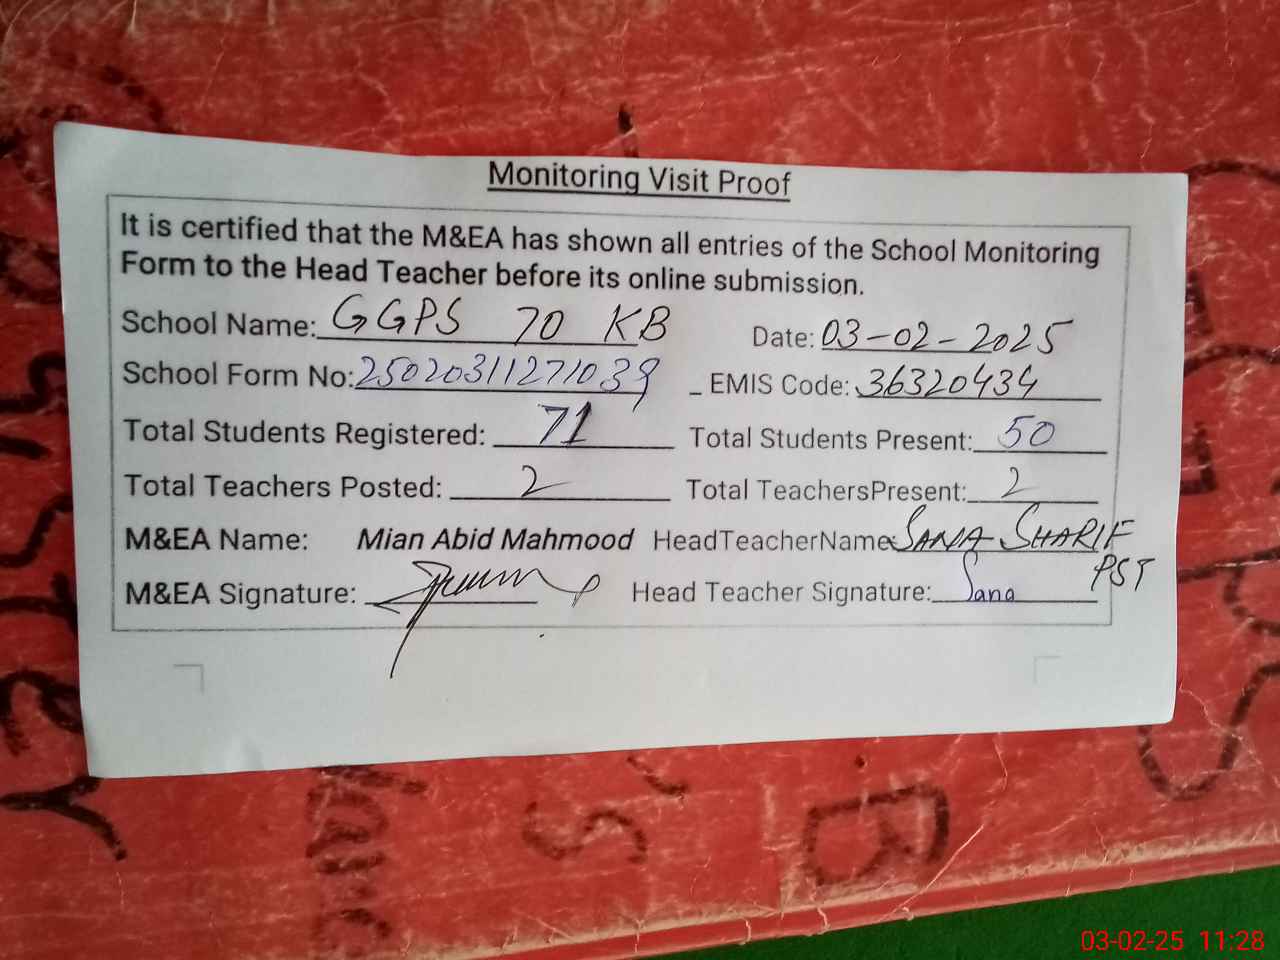 Monitoring Visit Proof
It is certified that the M&EA has shown all entries of the School Monitoring
Form to the Head Teacher before its online submission.
School Name: GGPS 70 KB Date: 03-02-2025
School Form No: 25020311271039 EMIS Code: 36320434
Total Students Registered: 71 Total Students Present: 50
Total Teachers Posted: 2 Total TeachersPresent: 2
M&EA Name: Mian Abid Mahmood HeadTeacherName: SANA SHARIF
PST
M&EA Signature: Head Teacher Signature: Sana
B
03-02-25 11:28